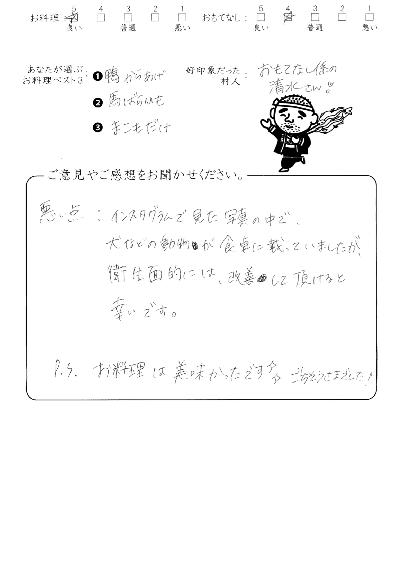 お料理 5 4 3 2 1 おもてなし: 5 4 3 2 1
良い 普通 悪い 良い 普通 悪い
あなたが選ぶ
お料理ベスト3 :
❶鴨からあげ
❷馬ばらひも
❸まこもだけ
好印象だった
村人 :
おもてなし係の
清水さん!!
ご意見やご感想をお聞かせください。
悪い点 : インスタグラムで見た写真の中で、
犬などの動物が食卓に載っていましたが、
衛生面的には、改善して頂けると
幸いです。
P.S. お料理は美味かったです ごちそうさまでした!